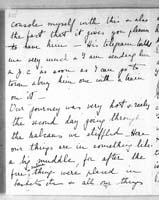 console myself with this & also
the fact that it gives you pleasure
to have him — His telegram
me very much & I am sending him
a J.C. as soon as I can go to
town along him one with it
on it
Our journey was very hot & rocky
the second day going through
the we stifled. Here
our things are in something like
a big muddle, for after the
fire, things were placed in
baskets etc in all our things